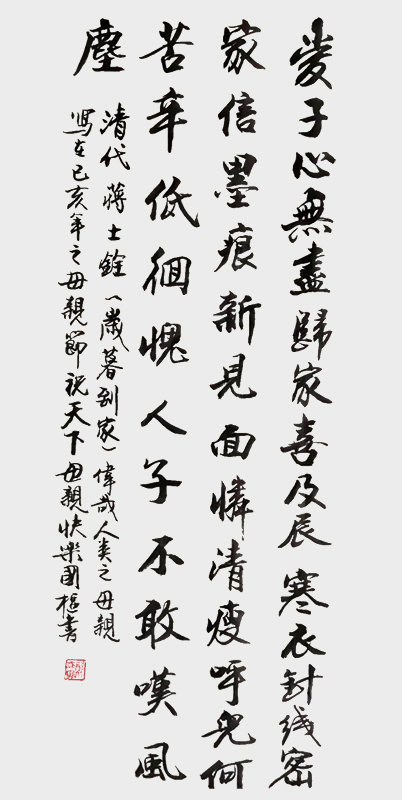 愛子心無盡歸家喜及辰寒衣針线密
家信墨痕新見面憐清瘦呼兒何
苦辛低徊愧人子不敢嘆風
塵
清代蔣士銓（歲暮到家）偉哉人类之母親
寫在己亥年之母親節祝天下母親快樂國樞書